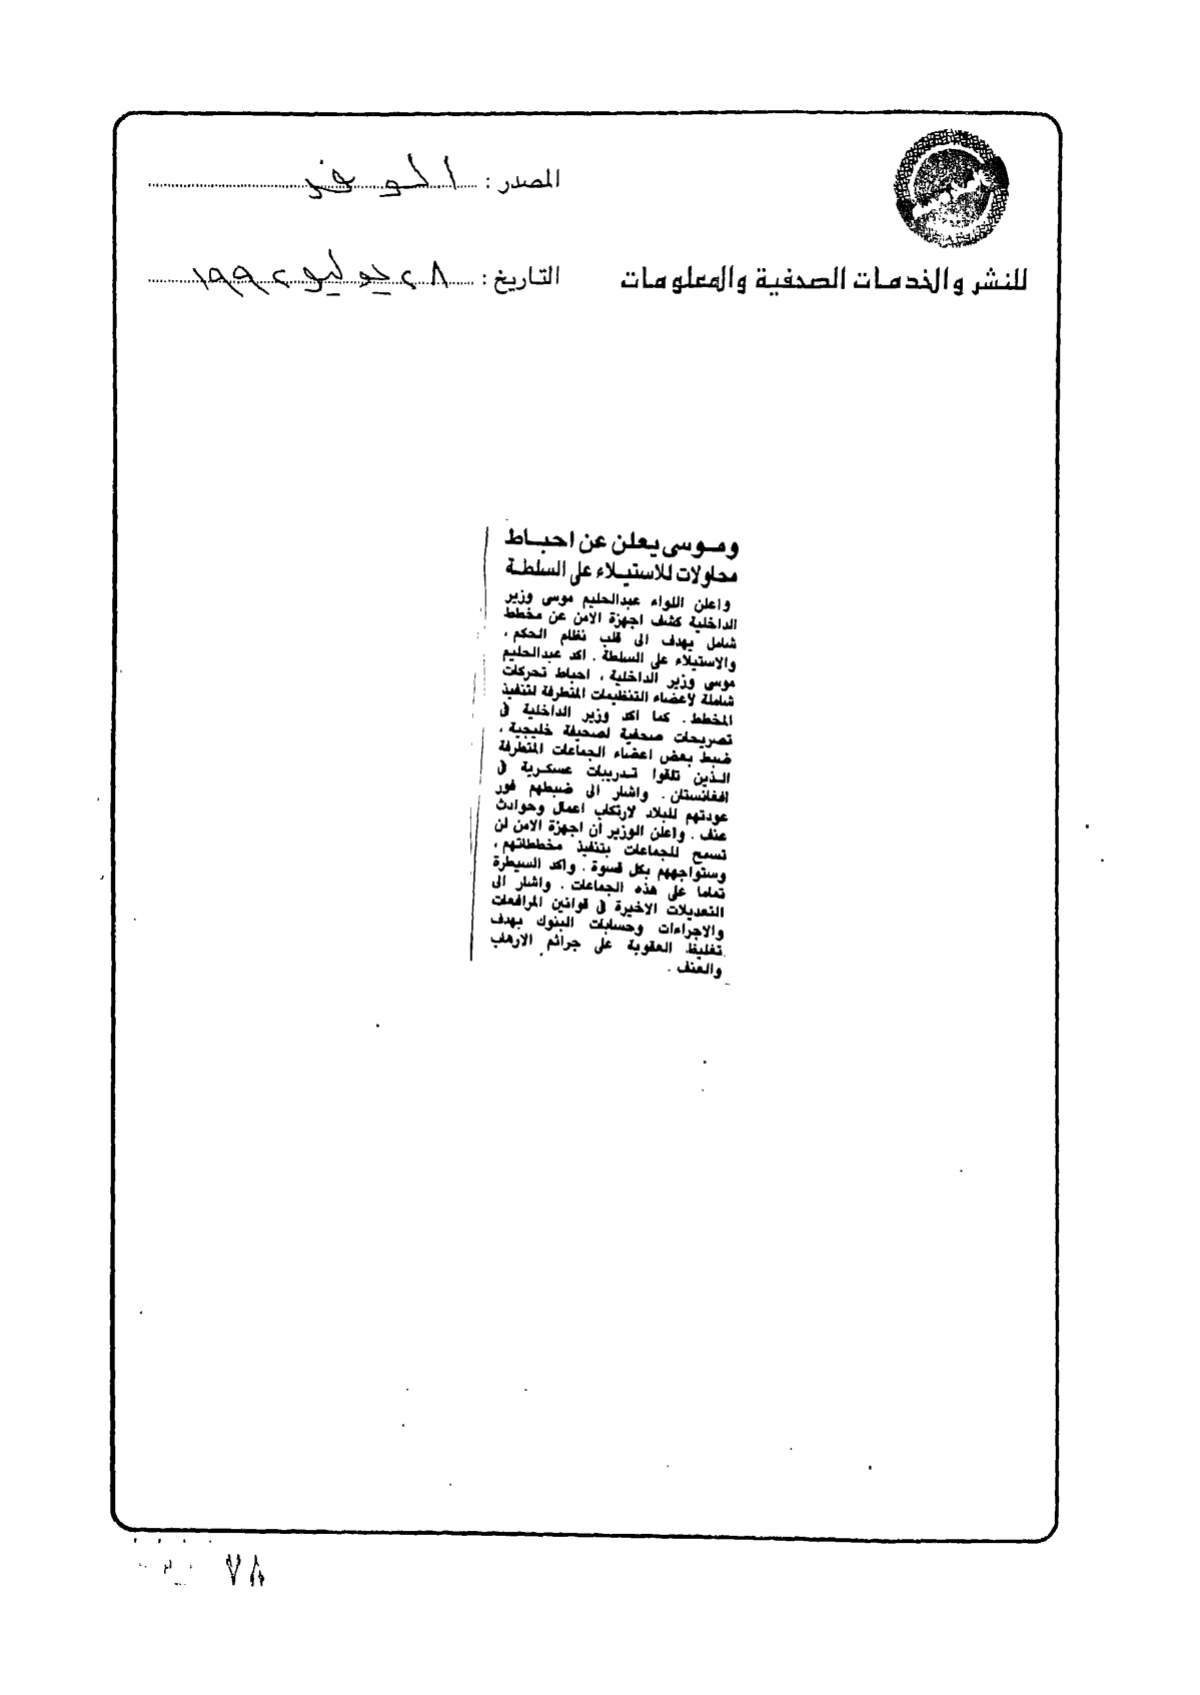 المصدر : الوفد
للنشر والخدمات الصحفية والمعلومات
التاريخ : ٢٨ يوليو ١٩٩٢
وموسى يعلن عن احباط
محاولات للاستيلاء على السلطة
واعلن اللواء عبدالحليم موسى وزير
الداخلية كشف اجهزة الامن عن مخطط
شامل يهدف الى قلب نظام الحكم ،
والاستيلاء على السلطة . اكد عبدالحليم
موسى وزير الداخلية ، احباط تحركات
شاملة لاعضاء التنظيمات المتطرفة لتنفيذ
المخطط . كما اكد وزير الداخلية فى
تصريحات صحفية لصحيفة خليجية ،
ضبط بعض اعضاء الجماعات المتطرفة
الذين تلقوا تدريبات عسكرية فى
افغانستان . واشار الى ضبطهم فور
عودتهم للبلاد لارتكاب اعمال وحوادث
عنف . واعلن الوزير ان اجهزة الامن لن
تسمح للجماعات بتنفيذ مخططاتهم ،
وستواجههم بكل قسوة . واكد السيطرة
تماما على هذه الجماعات . واشار الى
التعديلات الاخيرة فى قوانين المرافعات
والاجراءات وحسابات البنوك بهدف
تغليظ العقوبة على جرائم الارهاب
والعنف .
٧٨